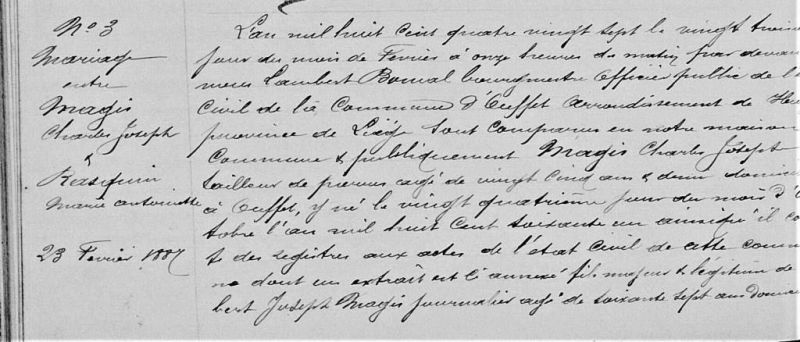 No 3
Mariage
entre
Magis
Charles Joseph
&
Rasquin
Marie antoinette
23 Fevrier 1887
L'an mil huit cent quatre vingt sept le vingt trois
jour du mois de Fevrier á onze heures du matin par devan
nous Lambert Bonval bourgmestre Officier public de l'
Civil de la Commune d'Ouffet Arrondissement de Hu
province de Liége sont comparus en notre maison
Commune & publiquement Magis Charles Joseph
tailleur de pierres agé de vingt cinq ans & demi domici
à Ouffet, y né le vingt quatrieme jour du mois d'O
tobre l'an mil huit Cent soixante un ainsi qu'il co
t des registres aux actes de l'état Civil de cette commu
ne dont un extrait est ci annexé fils majeur & légitime de
bert Joseph Magis journalier agé de soixante sept ans